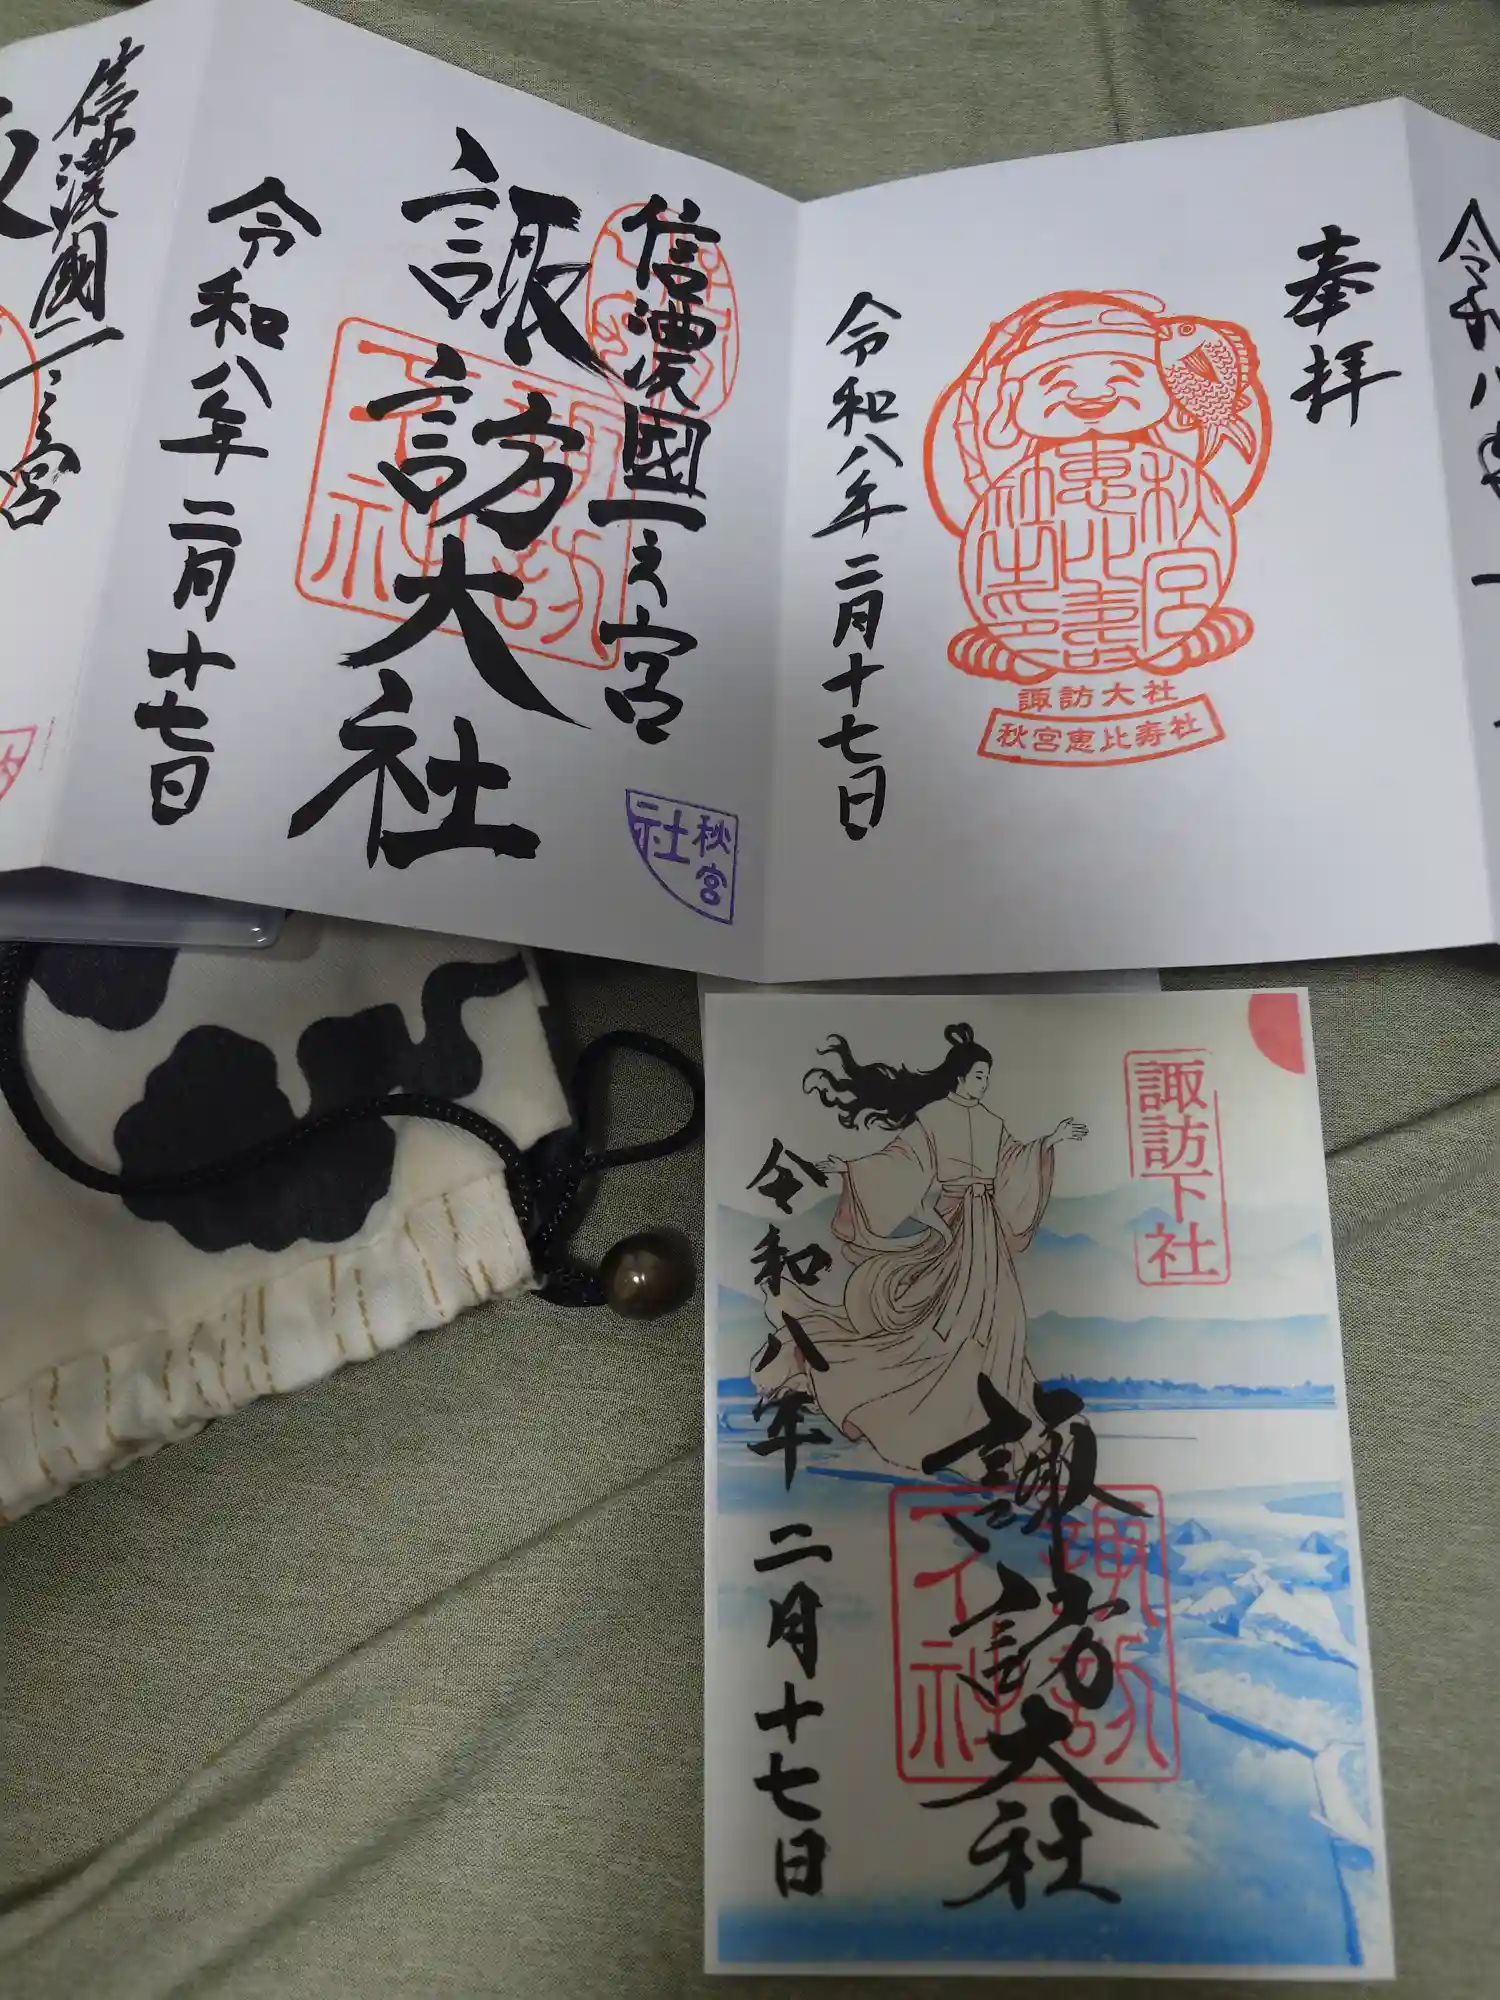 奉拝
秋宮
恵比寿
社之印
諏訪大社
秋宮恵比寿社
令和八年二月十七日
信濃國一之宮
諏訪大社
諏訪
下社
令和八年二月十七日
秋宮
社
信濃國一之宮
諏訪下社
諏訪大社
諏訪
下社
令和八年二月十七日